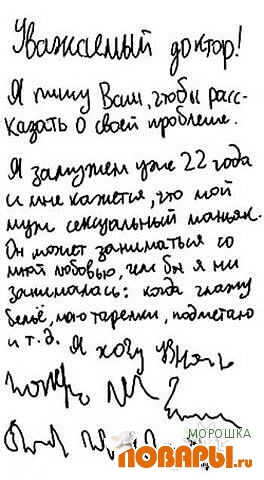 Уважаемый доктор!
Я пишу Вам, чтобы расс-
казать о своей проблеме.
Я замужем уже 22 года
и мне кажется, что мой
муж сексуальный маньяк.
Он может заниматься со
мной любовью, чем бы я ни
занималась: когда глажу
бельё, мою тарелки, подметаю
и т.д. Я хочу знать
МОРОШКА
ПОВАРЫ.ru